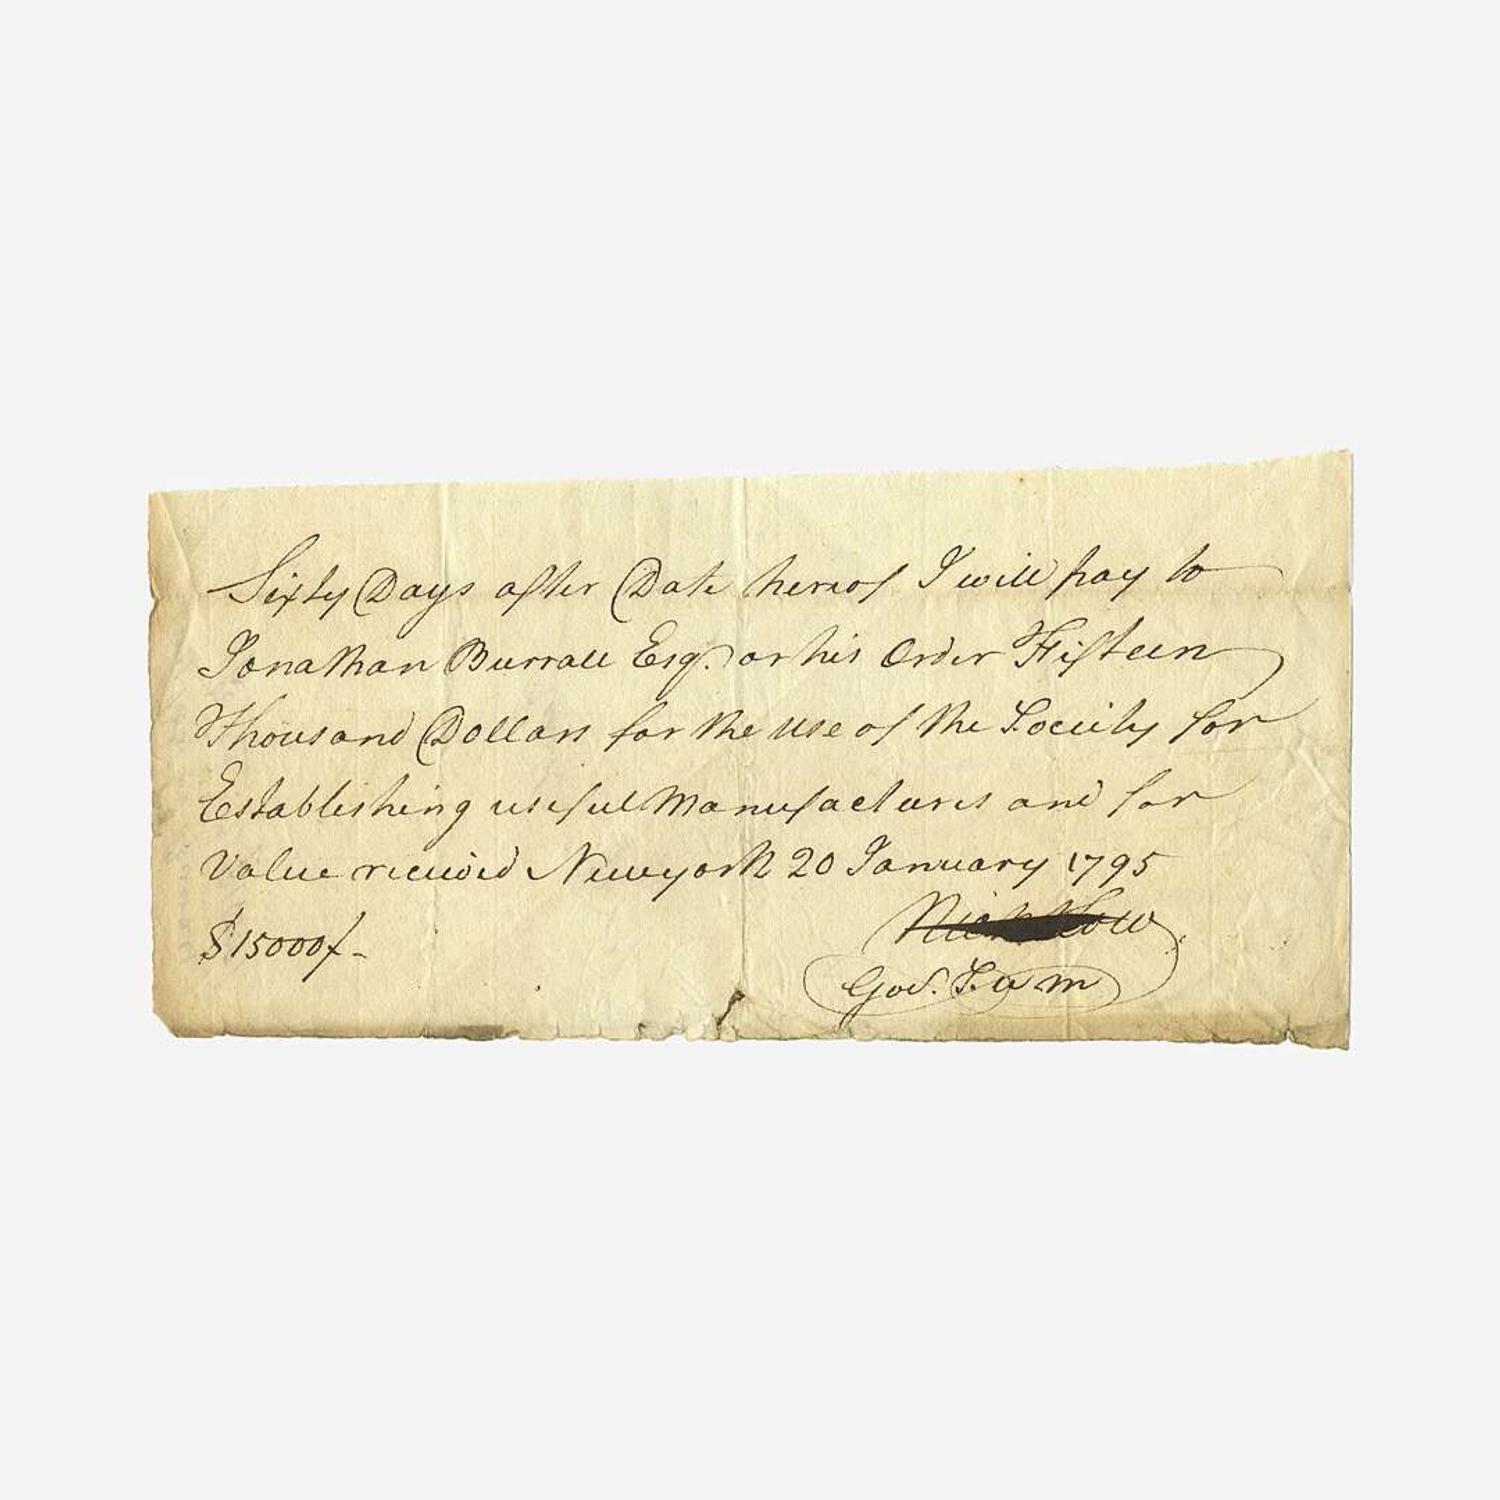 Sixty Days after Date hereof I will pay to
Jonathan Burrall Esq. or his Order Fifteen
Thousand Dollars for the use of the Society for
Establishing useful Manufactures and for
Value received Newyork 20 January 1795
$15000/-
Nich Low
Gov. S.u m